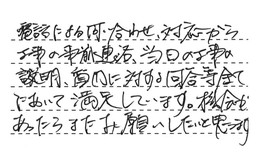 電話による問い合わせ、対応から
工事の事前連絡、当日の工事の
説明、質問に対する回答等全て
において満足しています。機会が
あったらまたお願いしたいと思います